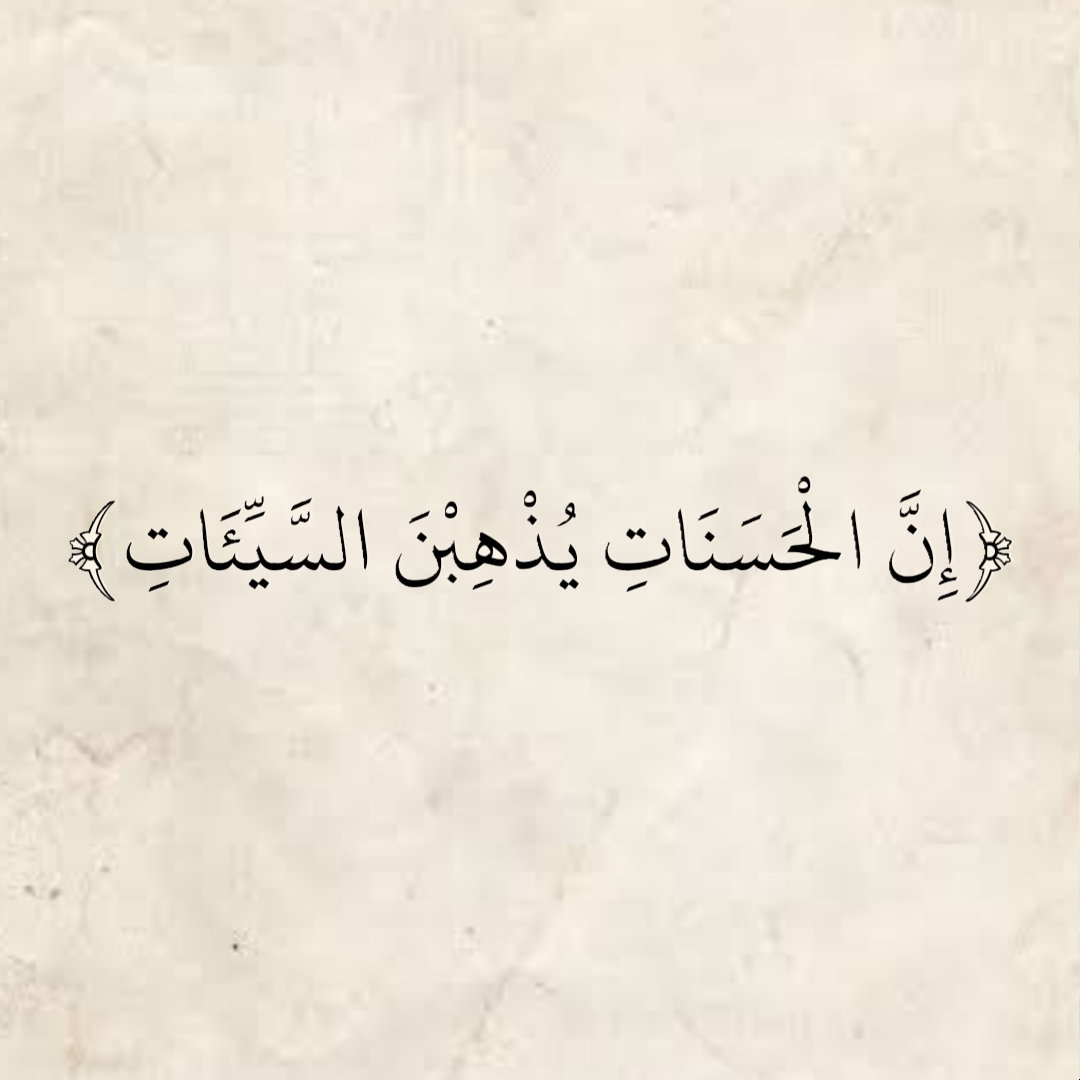 ﴿إِنَّ الْحَسَنَاتِ يُذْهِبْنَ السَّيِّئَاتِ﴾